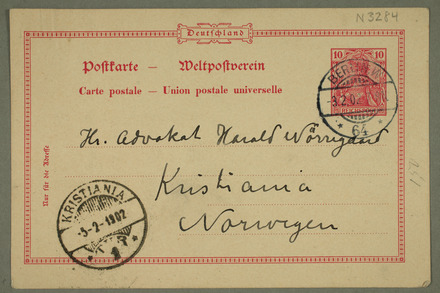 N3284
Deutschland
Postkarte — Weltpostverein
Carte postale — Union postale universelle
10 10
BERLIN
3.2.02
64
Nur für die Adresse
Hr. Advokat Harald Nörregaard
Kristiania
Norwegen
KRISTIANIA
-5-2-1902
1